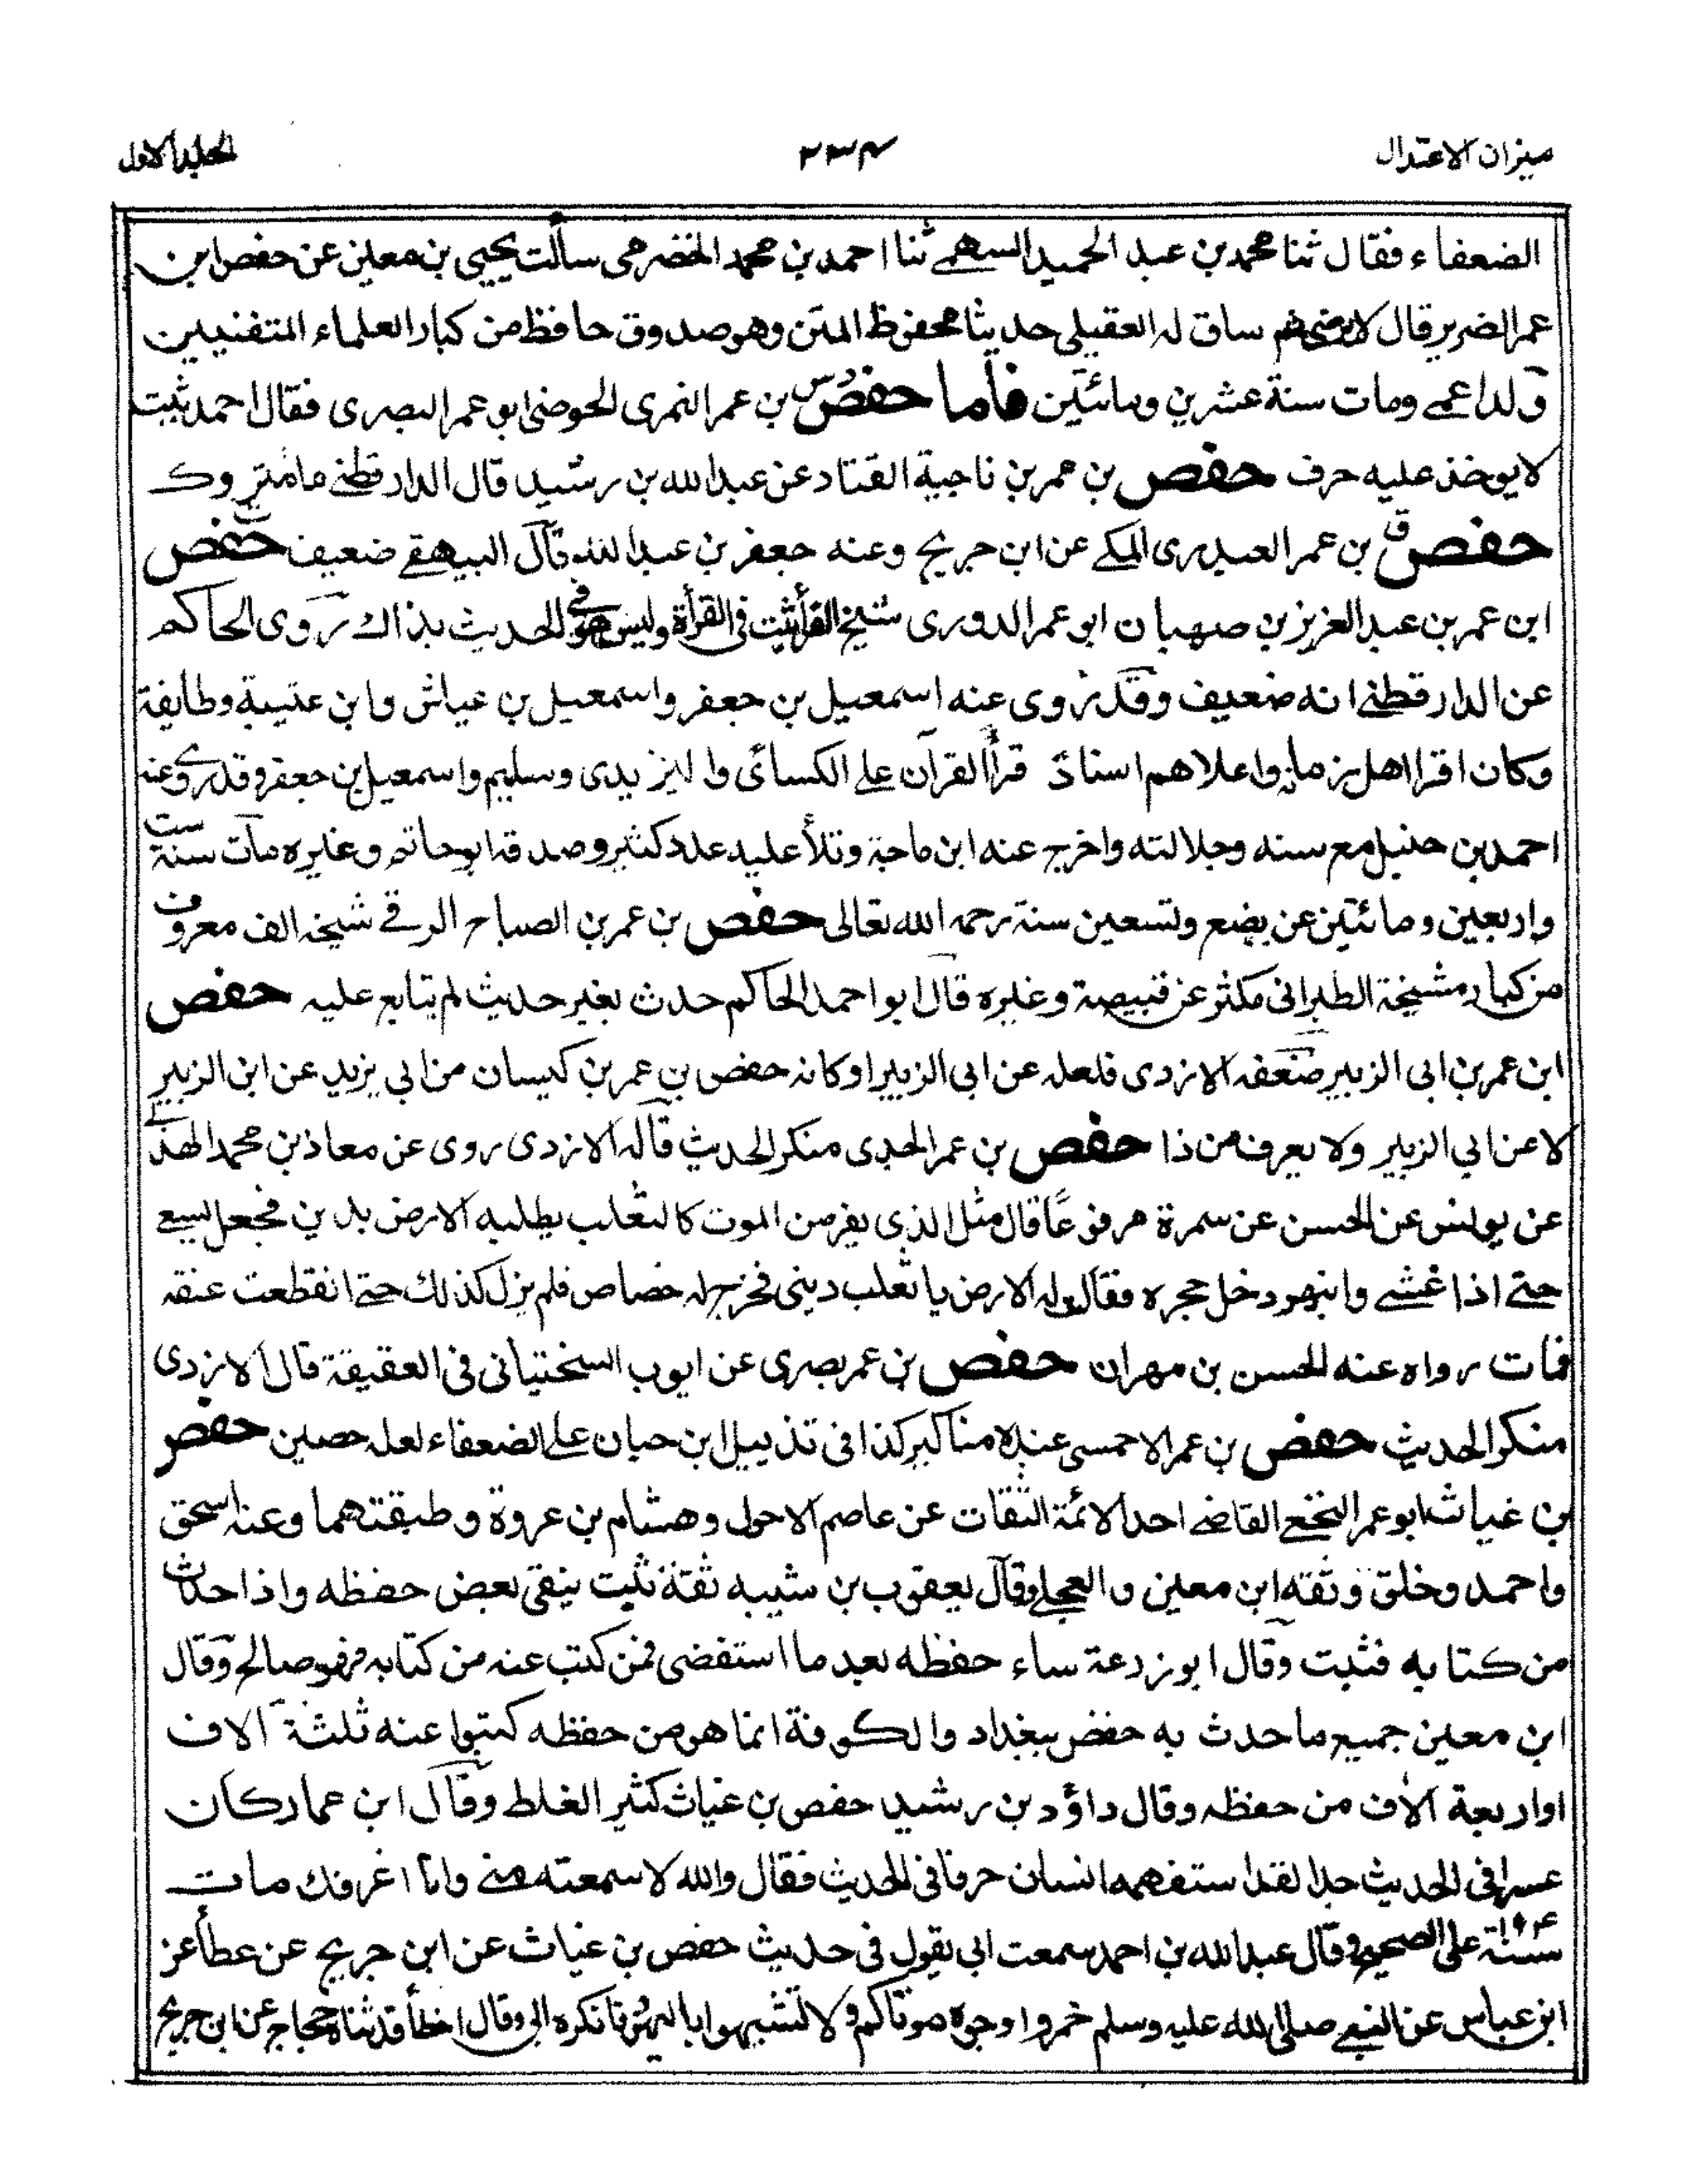 ميزان الاعتدال
٢٣٤
المجلد الاول
الضعفاء فقال ثنا محمد بن عبد الحميد السهمي ثنا احمد بن محمد الحضرمي سألت يحيى بن معين عن حفص ابن
عمر الضرير قال لا يرضى ثم ساق له العقيلي حديثا محفوظ المتن وهو صدوق حافظ من كبار العلماء المتفنيين
ولد اعمى ومات سنة عشرين ومائتين فأما حفص بن عمر النمري الحوضي ابو عمر البصري فقال احمد ثبت
لا يوخذ عليه حرف حفص بن عمر بن ناجية القناد عن عبد الله بن رشيد قال الدارقطني متروك
حفص ق بن عمر العبدري المكي عن ابن جريج وعنه جعفر بن عبد الله قال البيهقي ضعيف حفص ق
ابن عمر بن عبد العزيز بن صهبان ابو عمر الدوري شيخ القراء ثبت في القرأة وليس هو في الحديث بذاك روى الحاكم
عن الدارقطني انه ضعيف وقد روى عنه اسمعيل بن جعفر واسمعيل بن عياش وابن عتيبة وطايفة
وكان اقرا اهل زمانه واعلاهم اسنادا قرأ القرآن على الكسائي والیزیدی وسليم واسمعيل بن جعفر وقد روى عنه
احمد بن حنبل مع سنه وجلالته واخرج عنه ابن ماجة وتلأ عليه عدد كثير وصدقه ابو حاتم وغيره مات سنة ست
واربعين ومائتين عن بضع وتسعين سنة رحمه الله تعالى حفص بن عمر بن الصباح الرقي شيخ الف معروف
من كبار مشيخة الطبراني مكثر عن قبيصة وغيره قال ابو احمد الحاكم حدث بغير حديث لم يتابع عليه حفص
ابن عمر بن ابى الزبير ضعفه الازدى فلعله عن ابى الزبير او كانه حفص بن عمر بن كيسان من ابي يزيد عن ابن الزبير
لا عن ابي الزبير ولا يعرف من ذا حفص بن عمر الجدى منكر الحديث قاله الازدى روى عن معاذ بن محمد الهذلي
عن يونس عن الحسن عن سمرة مرفوعًا قال مثل الذى يفر من الموت كالثعلب يطلبه الارض بدين فجعل يسع
حتى اذا غشى وانبهر دخل جحره فقالت له الارض يا ثعلب ديني فخرج له خصاص فلم يزل كذلك حتى انقطعت عنقه
فمات رواه عنه الحسن بن مهران حفص بن عمر بصرى عن ايوب السختياني في العقيقة قال الازدى
منكر الحديث حفص بن عمر الاحمسى عنده مناكير كذا فى تذييل ابن حيان على الضعفاء لعله حصين حفص
بن غياث ابو عمر النخعي القاضي احد الائمة الثقات عن عاصم الاحول وهشام بن عروة وطبقتهما وعنه اسحق
واحمد وخلق وثقه ابن معين والعجلي وقال يعقوب بن شيبه ثقة ثبت يتقى بعض حفظه واذا حدث
من كتابه فثبت وقال ابو زرعة ساء حفظه بعد ما استقضى فمن كتب عنه من كتابه فهو صالح وقال
ابن معين جميع ما حدث به حفص ببغداد والكوفة انما هو من حفظه كتبوا عنه ثلثة آلاف
او اربعة آلاف من حفظه وقال داؤد بن رشيد حفص بن غياث كثير الغلط وقال ابن عمار كان
عسرا في الحديث جدا لقد استفهمه انسان حرفا في الحديث فقال والله لا سمعته مني وانا اعرفك مات
سنة على الصحيح وقال عبد الله بن احمد سمعت ابي يقول في حديث حفص بن غياث عن ابن جريج عن عطأ عن
ابن عباس عن النبي صلى الله عليه وسلم خمروا وجوه موتاكم ولا تشبهوا باليهود فانكره ابي وقال اخطأ قد ثناه حجاج عن ابن جريج